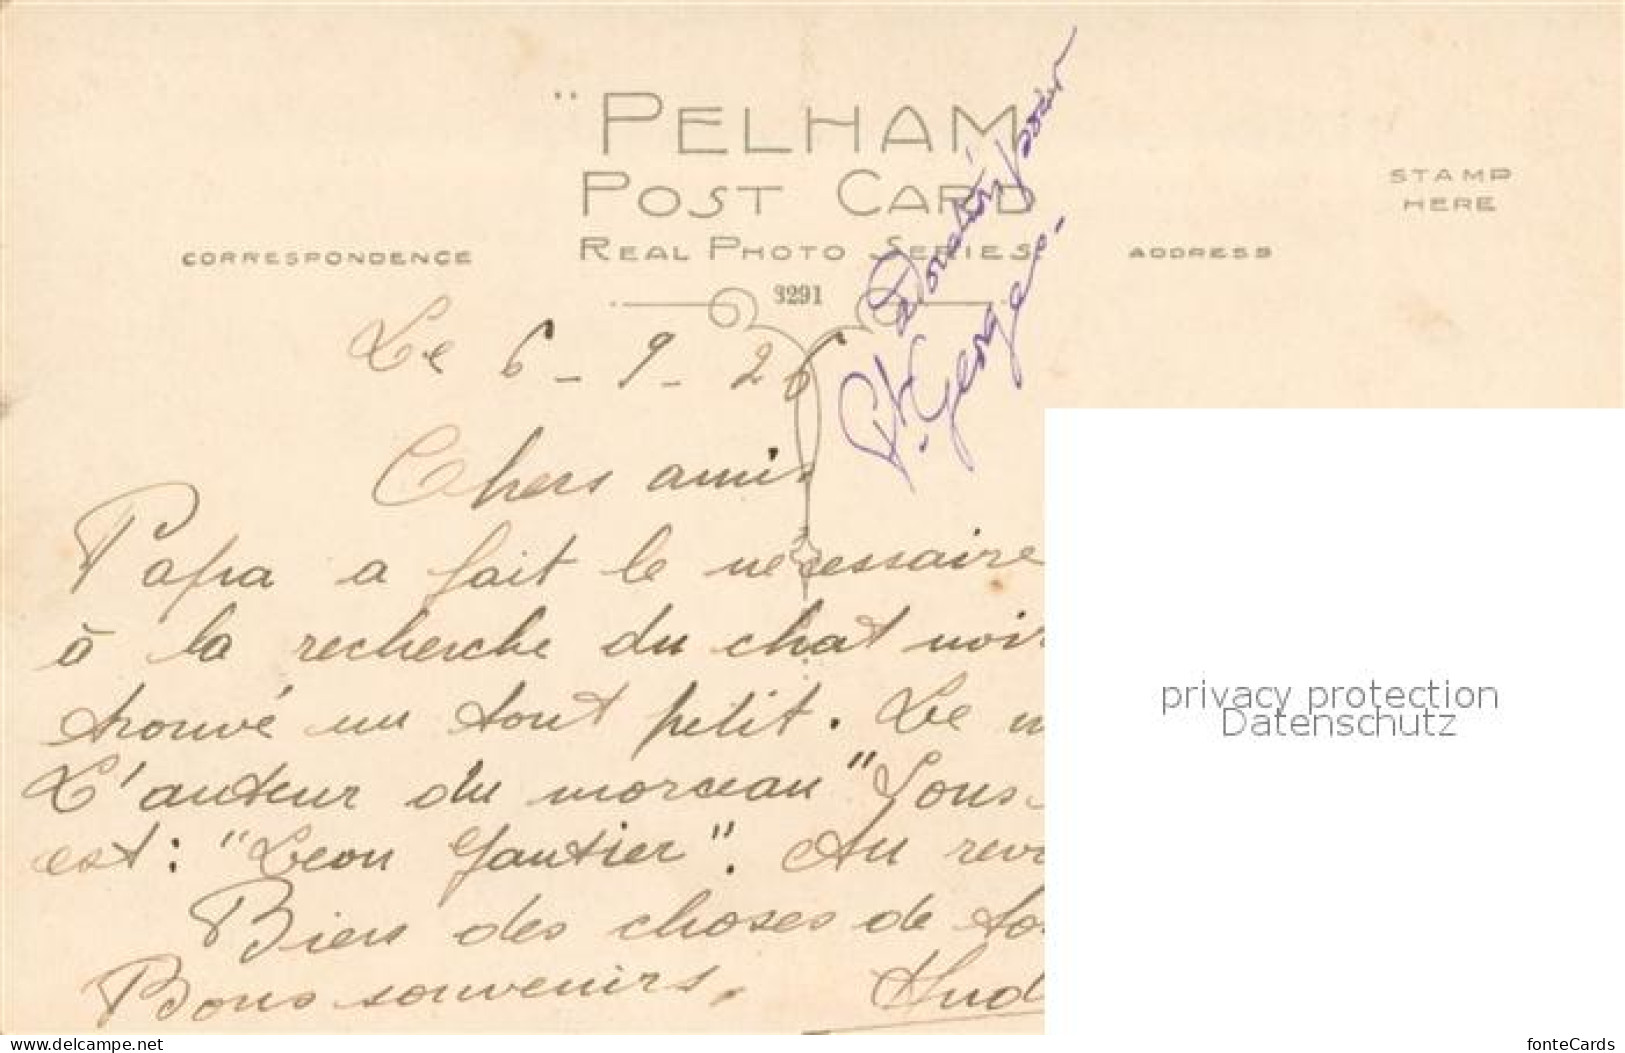 "PELHAM
POST CARD
REAL PHOTO SERIES
STAMP
HERE
CORRESPONDENCE
ADDRESS
3291
Le 6 - 9 - 26
Chers amis
Papa a fait le nécessaire
à la recherche du chat noir
trouvé un tout petit. Le
L'auteur du morceau "Sous
est: "Leon Gautier". Au rev
Bien des choses de to
Bons souvenirs.
George
privacy protection
Datenschutz
www.delcampe.net
fonteCards